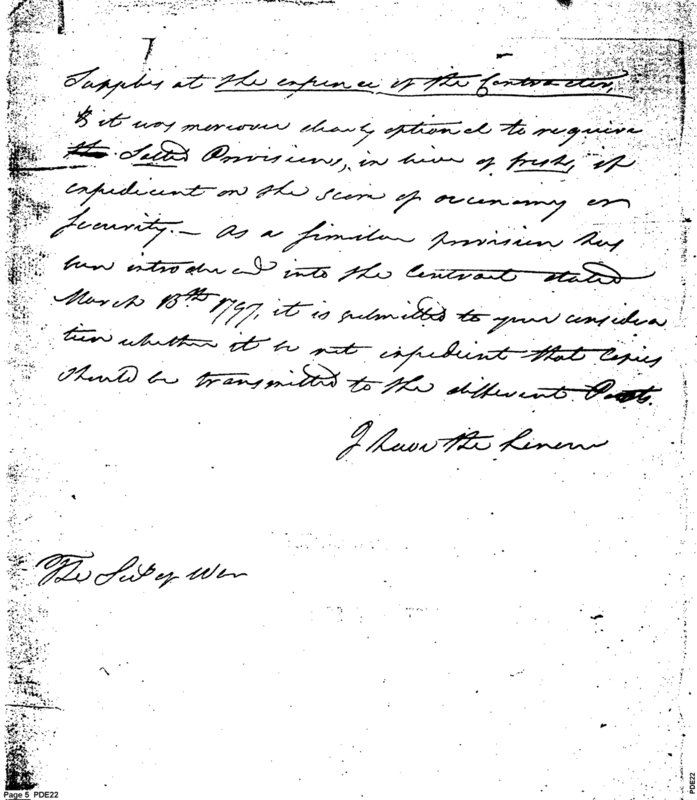 Supplies at the expence of the Contractor,
& it was moreover clearly optional to require
the Salted Provisions, in lieu of fresh, if
expedient on the score of oeconomy or
Security.— As a similar provision has
been introduced into the Contract dated
March 15th 1797, it is submitted to your considera
tion whether it be not expedient that Copies
should be transmitted to the different Posts.
I have the honour
The Secy of War
Page 5 PDE22
PDE22